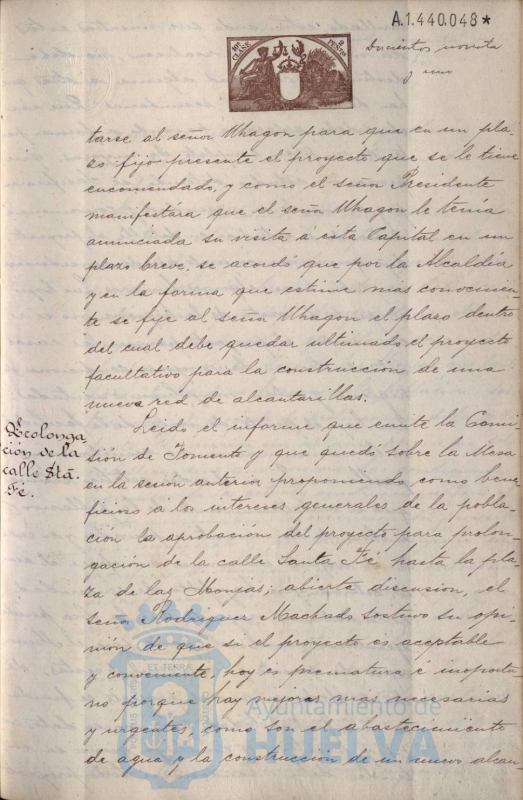 A.1.440.048*
10ª CLASE
2 PESETAS
Doscientos noventa
y uno
tarse al señor Uhagon para que en un pla-
zo fijo presente el proyecto que se le tiene
encomendado, y como el señor Presidente
manifestára que el señor Uhagon le tenía
anunciada su visita á esta Capital en un
plazo breve, se acordó que por la Alcaldía
y en la forma que estime mas convenien-
te se fije al señor Uhagon el plazo dentro
del cual debe quedar ultimado el proyecto
facultativo para la construccion de una
nueva red de alcantarillas.
Prolonga
ción de la
calle Stá.
Fé.
Leido el informe que emite la Comi-
sión de Fomento y que quedó sobre la Mesa
en la sesión anterior proponiendo como bene-
ficioso á los intereses generales de la pobla-
ción la aprobación del proyecto para prolon-
gación de la calle Santa Fé hasta la pla-
za de las Monjas; abierta discusion, el
señor Rodriguez Machado sostuvo su opi-
nión de que si el proyecto es aceptable
y conveniente, hoy es prematura é inoportu-
no porque hay mejoras mas necesarias
y urgentes, como son el abastecimiento
de agua y la construccion de un nuevo alcan-
ET TERRÆ
Ayuntamiento de
HUELVA